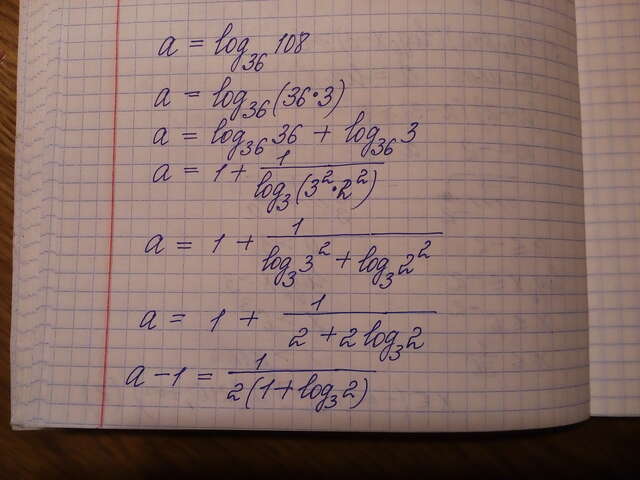 a = log₃₆ 108
a = log₃₆(36·3)
a = log₃₆ 36 + log₃₆ 3
a = 1 + 1/(log₃(3²·2²))
a = 1 + 1/(log₃ 3² + log₃ 2²)
a = 1 + 1/(2 + 2 log₃ 2)
a − 1 = 1/(2(1 + log₃ 2))